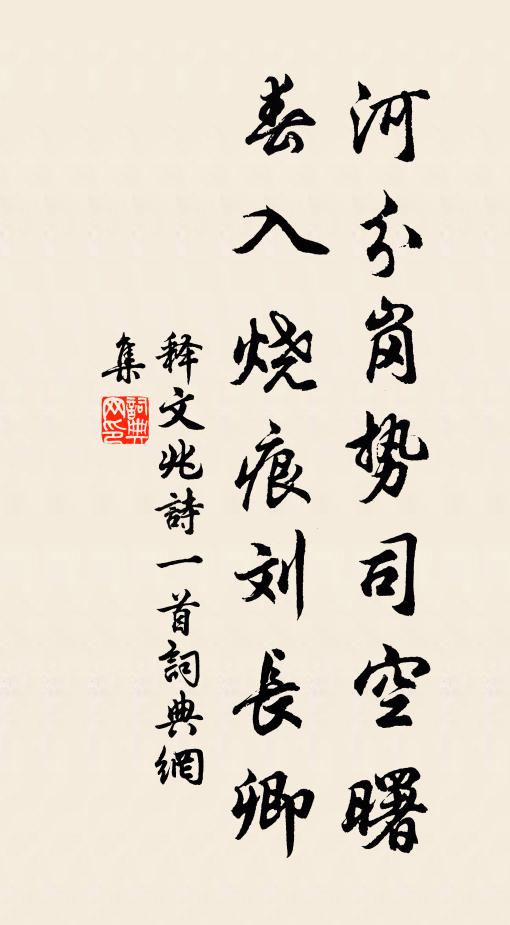 河分岗势司空曙
春入烧痕刘長卿
释文兆詩一首詞典網
集
詞典
网印